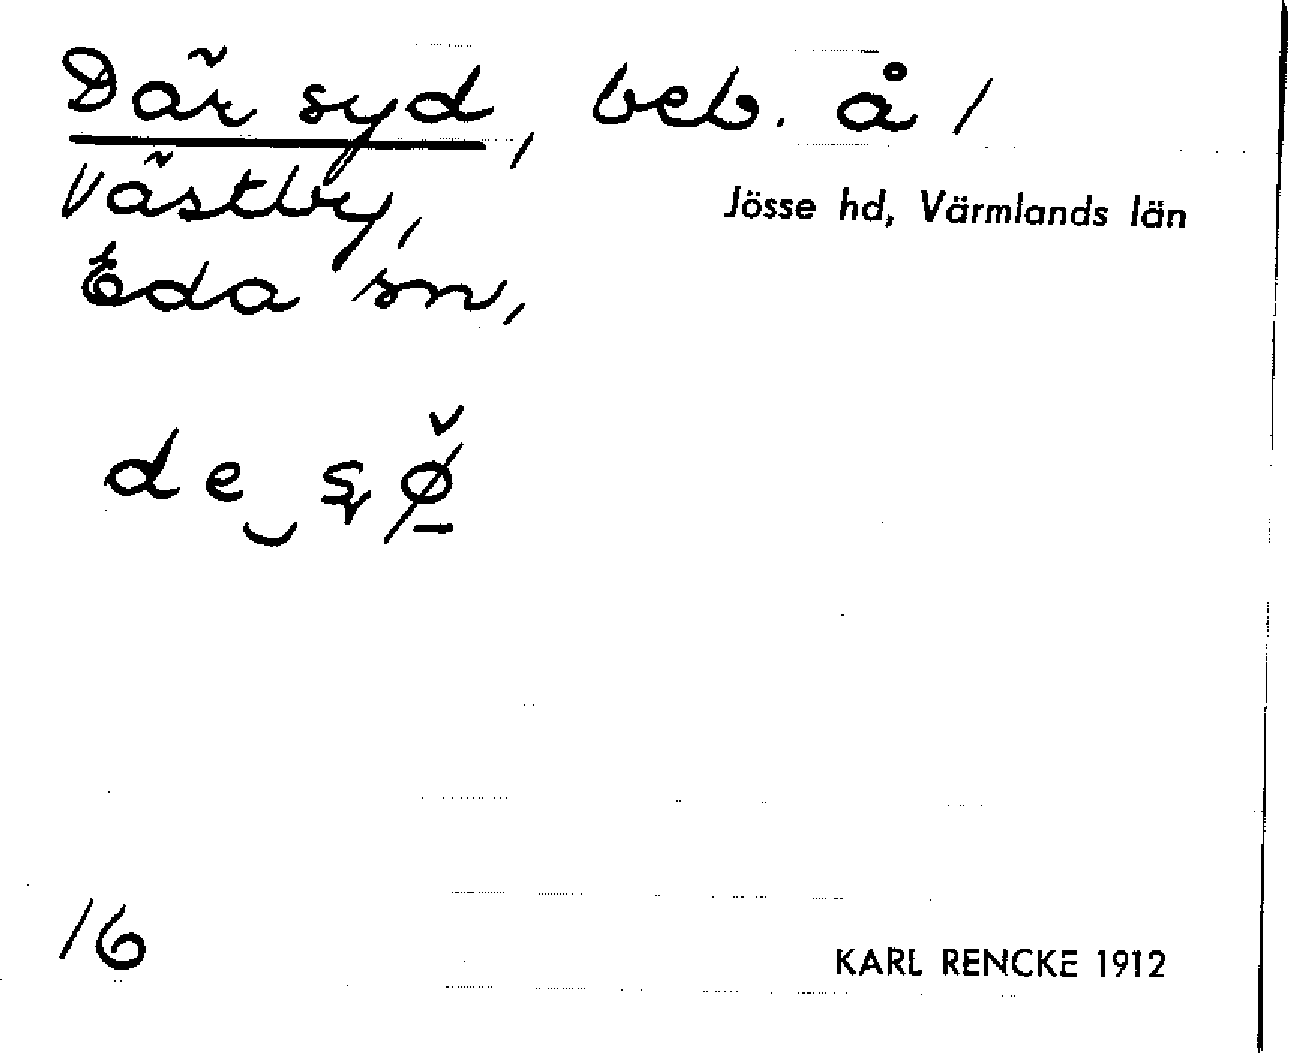 Där syd, beb. å /
Västby,
Jösse hd, Värmlands län
Eda sn,
16
KARL RENCKE 1912